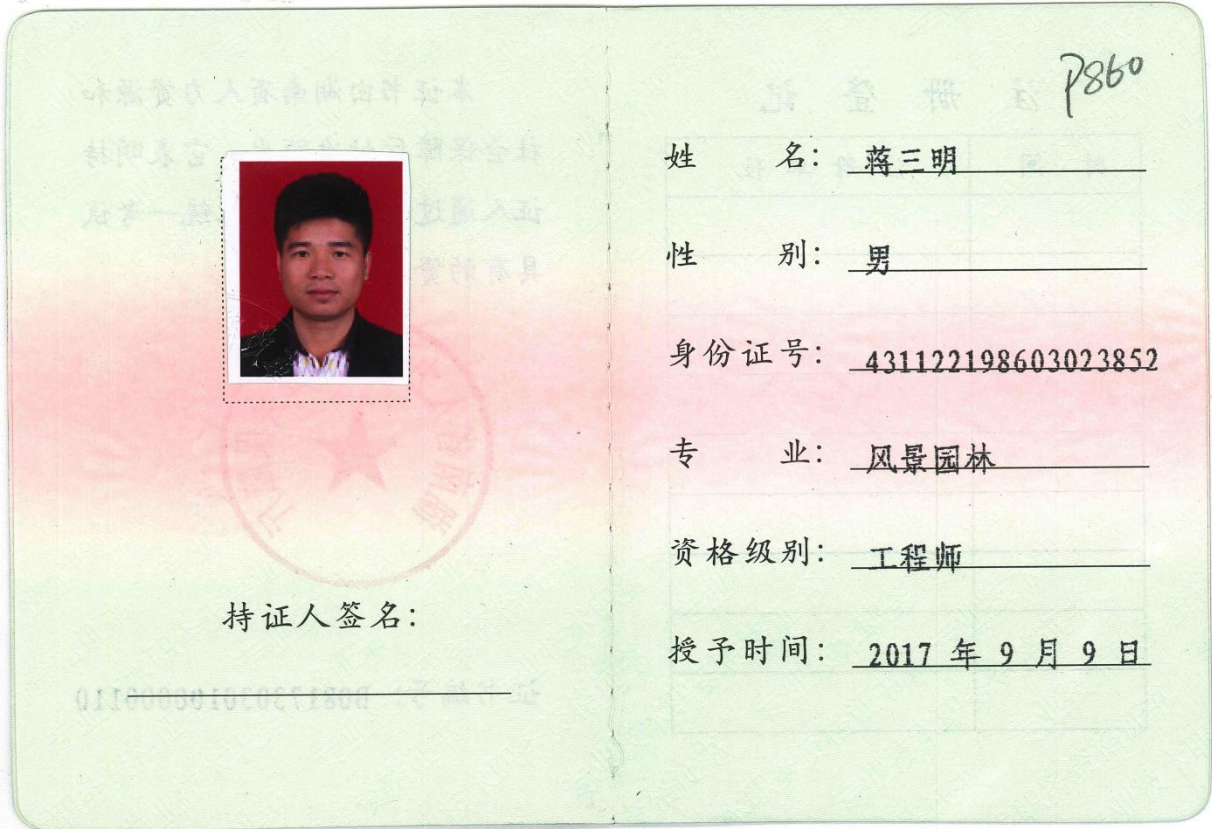 P860
姓 名： 蒋三明
性 别： 男
身份证号： 431122198603023852
专 业： 风景园林
资格级别： 工程师
授予时间： 2017 年 9 月 9 日
持证人签名：